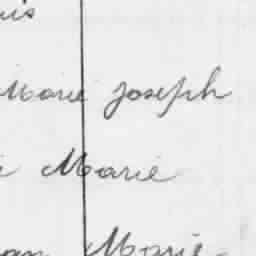 uis
Marie Joseph
e Marie
an Marie